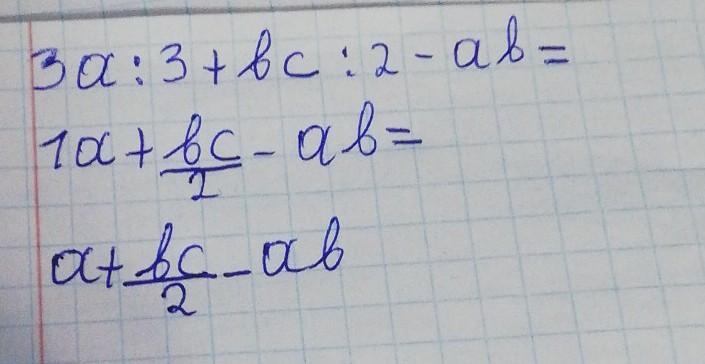 3a : 3 + bc : 2 - ab =
1a + bc/2 - ab =
a + bc/2 - ab